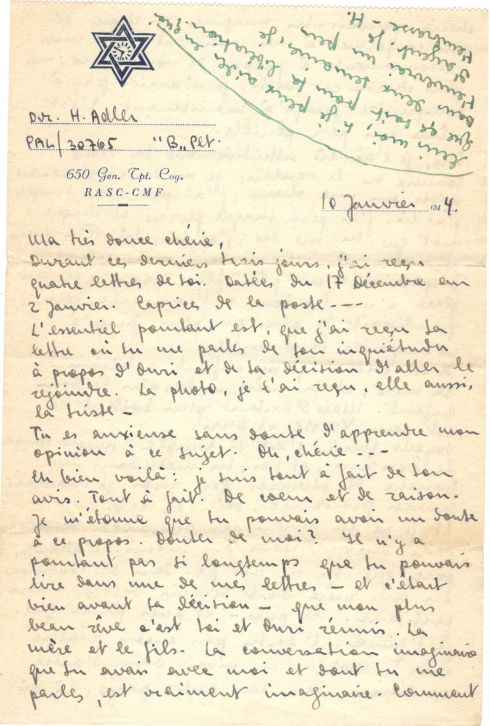 Dvr. H. Adler
PAL/30765 "B" Plt.
650 Gen. Tpt. Coy.
RASC-CMF
10 Janvier 1944.
Ma très douce chérie,
Durant ces derniers trois jours, j'ai reçu
quatre lettres de toi. Datées du 17 Décembre au
2 Janvier. Caprices de la poste ---
L'essentiel pourtant est, que j'ai reçu ta
lettre où tu me parles de ton inquiétude
à propos d'Ouri et de ta décision d'aller le
rejoindre. La photo, je l'ai reçu, elle aussi,
la triste -
Tu es anxieuse sans doute d'apprendre mon
opinion à ce sujet. Oh, chérie ---
Eh bien voilà: je suis tout à fait de ton
avis. Tout à fait. De coeur et de raison.
Je m'étonne que tu pouvais avoir un doute
à ce propos. Douter de moi? Il n'y a
pourtant pas si longtemps que tu pouvais
lire dans une de mes lettres - et c'était
bien avant ta décision - que mon plus
beau rêve c'est toi et Ouri réunis. La
mère et le fils. La conversation imaginaire
que tu avais avec moi et dont tu me
parles, est vraiment imaginaire. Comment
Ecris moi, si je peux aider en
que ce soit pour sa libération.
dans deux semaines, je
t'enverrai un peu
d'argent. Je
t'embrasse - H.